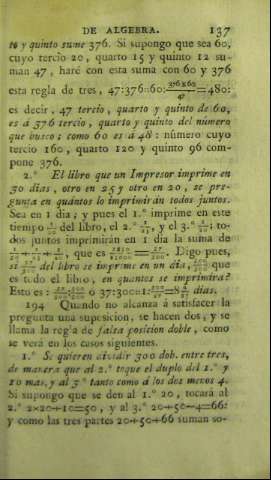 DE ALGEBRA. 137
to y quinto sume 376. Si supongo que sea 60,
cuyo tercio 20, quarto 15 y quinto 12 su-
man 47, haré con esta suma con 60 y 376
esta regla de tres, 47:376::60: 376×60/47 =480:
es decir, 47 tercio, quarto y quinto de 60,
es á 376 tercio, quarto y quinto del número
que busco; como 60 es á 48: número cuyo
tercio 160, quarto 120 y quinto 96 com-
pone 376.
2.° El libro que un Impresor imprime en
30 dias, otro en 25 y otro en 20, se pre-
gunta en quántos lo imprimirán todos juntos.
Sea en 1 dia; y pues el 1.° imprime en este
tiempo del libro, el 2.° y el 3.° to-
dos juntos imprimirán en 1 dia la suma de
que es Digo pues,
si del libro se imprime en un dia, que
es todo el libro, en quantos se imprimirá?
Esto es: 37:300::1: dias.
194 Quando no alcanza á satisfacer la
pregunta una suposicion, se hacen dos, y se
llama la regla de falsa posicion doble, como
se verá en los casos siguientes.
1.° Se quieren dividir 300 dob. entre tres,
de manera que al 2.° toque el duplo del 1.° y
10 mas, y al 3.° tanto como á los dos menos 4.
Si supongo que se den al 1.° 20, tocará al
2.° 2×20+10=50, y al 3.° 20+50-4=66:
y como las tres partes 20+50+66 suman so-